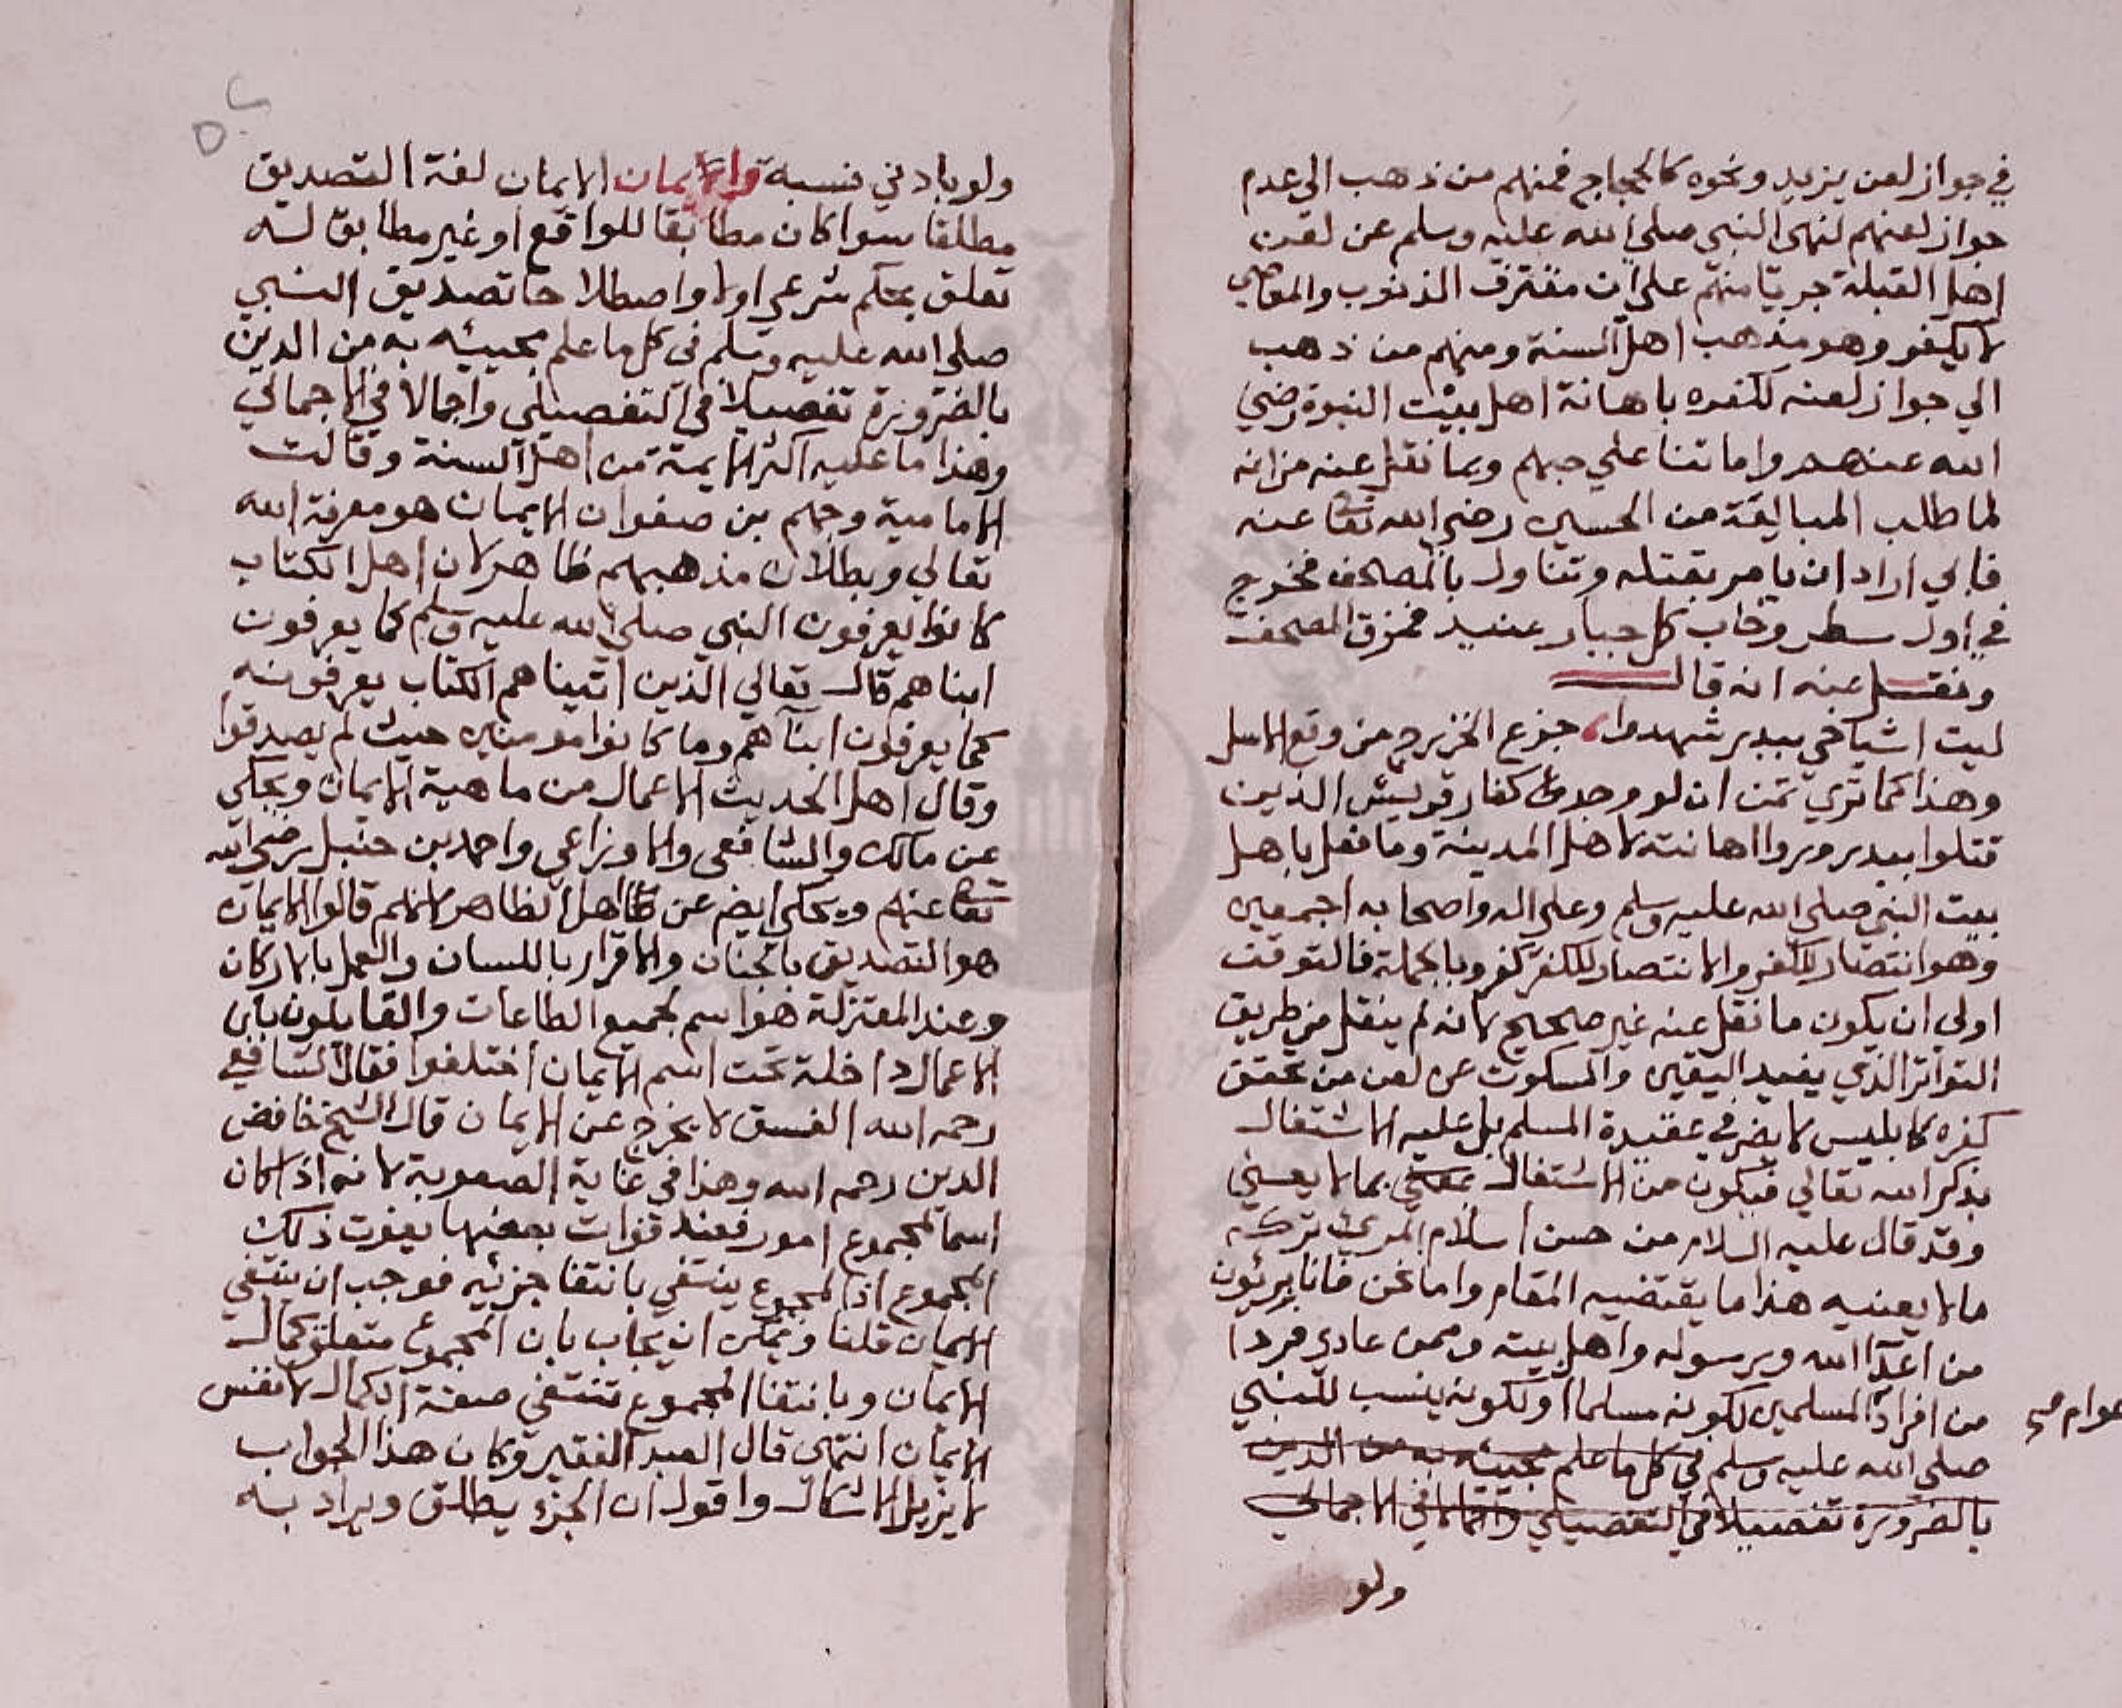 في جواز لعن يزيد ونحوه كالحجاج فمنهم من ذهب الى عدم
جواز لعنهم لنهى النبي صلي الله عليه وسلم عن لعن
اهل القبلة جريا منهم على ان مقترف الذنوب والمعاصي
لا يكفر وهو مذهب اهل السنة ومنهم من ذهب
الي جواز لعنه لكفره باهانة اهل بيت النبوة رضي
الله عنهم واماتنا علي حبهم وبما نقل عنه من انه
لما طلب المبايعة من الحسين رضي الله تعا عنه
فابي اراد ان يامر بقتله وتفاول بالمصحف فخرج
في اول سطر وخاب كل جبار عنيد فمزق المصحف
ونقل عنه انه قال
ليت اشياخي ببدر شهدوا، جزع الخزرج من وقع الاسل
وهذا كما تري تمن ان لو وجدوا كفار قريش الذين
قتلوا ببدر وروا اهانته لاهل المدينة وما فعل باهل
بيت النبي صلى الله عليه وسلم وعلى اله واصحابه اجمعين
وهو انتصار للكفر والانتصار للكفر كفر وبالجملة فالتوقف
اولي ان يكون ما نقل عنه غير صحيح لانه لم ينقل من طريق
التواتر الذي يفيد اليقين والسكوت عن لعن من تحقق
كفره كابليس لا يضر في عقيدة المسلم بل عليه الاشتغال
بذكر الله تعالي فيكون من الاشتغال بما لا يعني
وقد قال عليه السلام من حسن اسلام المرئ تركه
مالا يعنيه هذا ما يقتضيه المقام واما نحن فانا بريئون
من اعدآ الله ورسوله واهل بيته وممن عادي فردا
من افراد المسلمين لكونه مسلما او لكونه ينسب للنبي
عوام صح
صلي الله عليه وسلم في كل ما علم بمجيئه به من الدين
بالضرورة تفصيلا في التفصيلي واجمالا في الاجمالي
ولو
ولو بادني نسبة والايمان الايمان لغة التصديق
مطلقا سوا كان مطابقا للواقع او غير مطابق له
تعلق بحكم شرعي اولا واصطلاحا تصديق النبي
صلى الله عليه وسلم في كل ما علم بمجيئه به من الدين
بالضرورة تفصيلا في التفصيلي واجمالا في الاجمالي
وهذا ما عليه اكثر الايمة من اهل السنة وقالت
الامامية وجهم بن صفوان الايمان هو معرفة الله
تعالي وبطلان مذهبهم ظاهر لان اهل الكتاب
كانوا يعرفون النبي صلى الله عليه وسلم كما يعرفون
ابناهم قال تعالي الذين اتيناهم الكتاب يعرفونه
كما يعرفون ابنآهم وما كانوا مومنين حيث لم يصدقوا
وقال اهل الحديث الاعمال من ماهية الايمان ويحكي
عن مالك والشافعى والاوزاعي واحمد بن حنبل رضى الله
تعا عنهم ويحكى ايض عن اهل الظاهر لانهم قالوا الايمان
هو التصديق بالجنان والاقرار باللسان والعمل بالاركان
وعند المعتزلة هو اسم لجميع الطاعات والقايلون بان
الاعمال داخلة تحت اسم الايمان اختلفوا فقال الشافعي
رحمه الله الفسق لا يخرج عن الايمان قال الشيخ خافض
الدين رحمه الله وهذا في غاية الصعوبة لانه اذا كان
اسما لمجموع امور فعند فوات بعضها يفوت ذلك
المجموع اذ المجموع ينتفي بانتفا جزئيه فوجب ان ينتفي
الايمان قلنا ويمكن ان يجاب بان المجموع متعلق بكمال
الايمان وبانتفا المجموع تنتفي صفة الكمال لا نفس
الايمان انتهى قال العبد الفقير وكان هذا الجواب
لا يزيل الاشكال واقول ان الجزء يطلق ويراد به